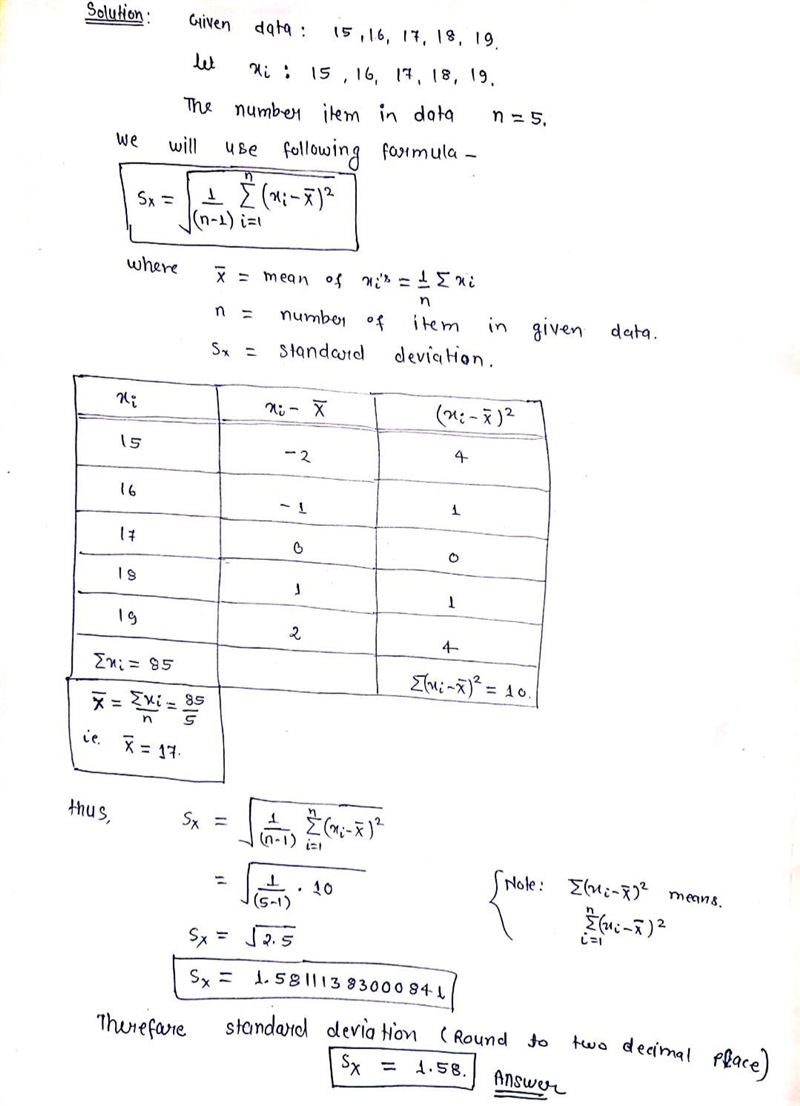 Solution: Given data : 15, 16, 17, 18, 19.
Let xi : 15, 16, 17, 18, 19.
The number item in data n = 5.
We will use following formula -
Sx = √(1/(n-1) Σ_{i=1}^{n} (xi - x̄)²)
where x̄ = mean of xi's = 1/n Σ xi
n = number of item in given data.
Sx = standard deviation.
xi | xi - x̄ | (xi - x̄)²
15 | -2 | 4
16 | -1 | 1
17 | 0 | 0
18 | 1 | 1
19 | 2 | 4
Σxi = 85 | | Σ(xi - x̄)² = 10.
x̄ = Σxi/n = 85/5
i.e. x̄ = 17.
thus, Sx = √(1/(n-1) Σ_{i=1}^{n} (xi - x̄)²)
= √(1/(5-1) · 10
{ Note: Σ(xi - x̄)² means.
Σ_{i=1}^{n} (xi - x̄)²
Sx = √2.5
Sx = 1.58111383000841
Therefare standard deviation (Round to two decimal place)
Sx = 1.58. Answer